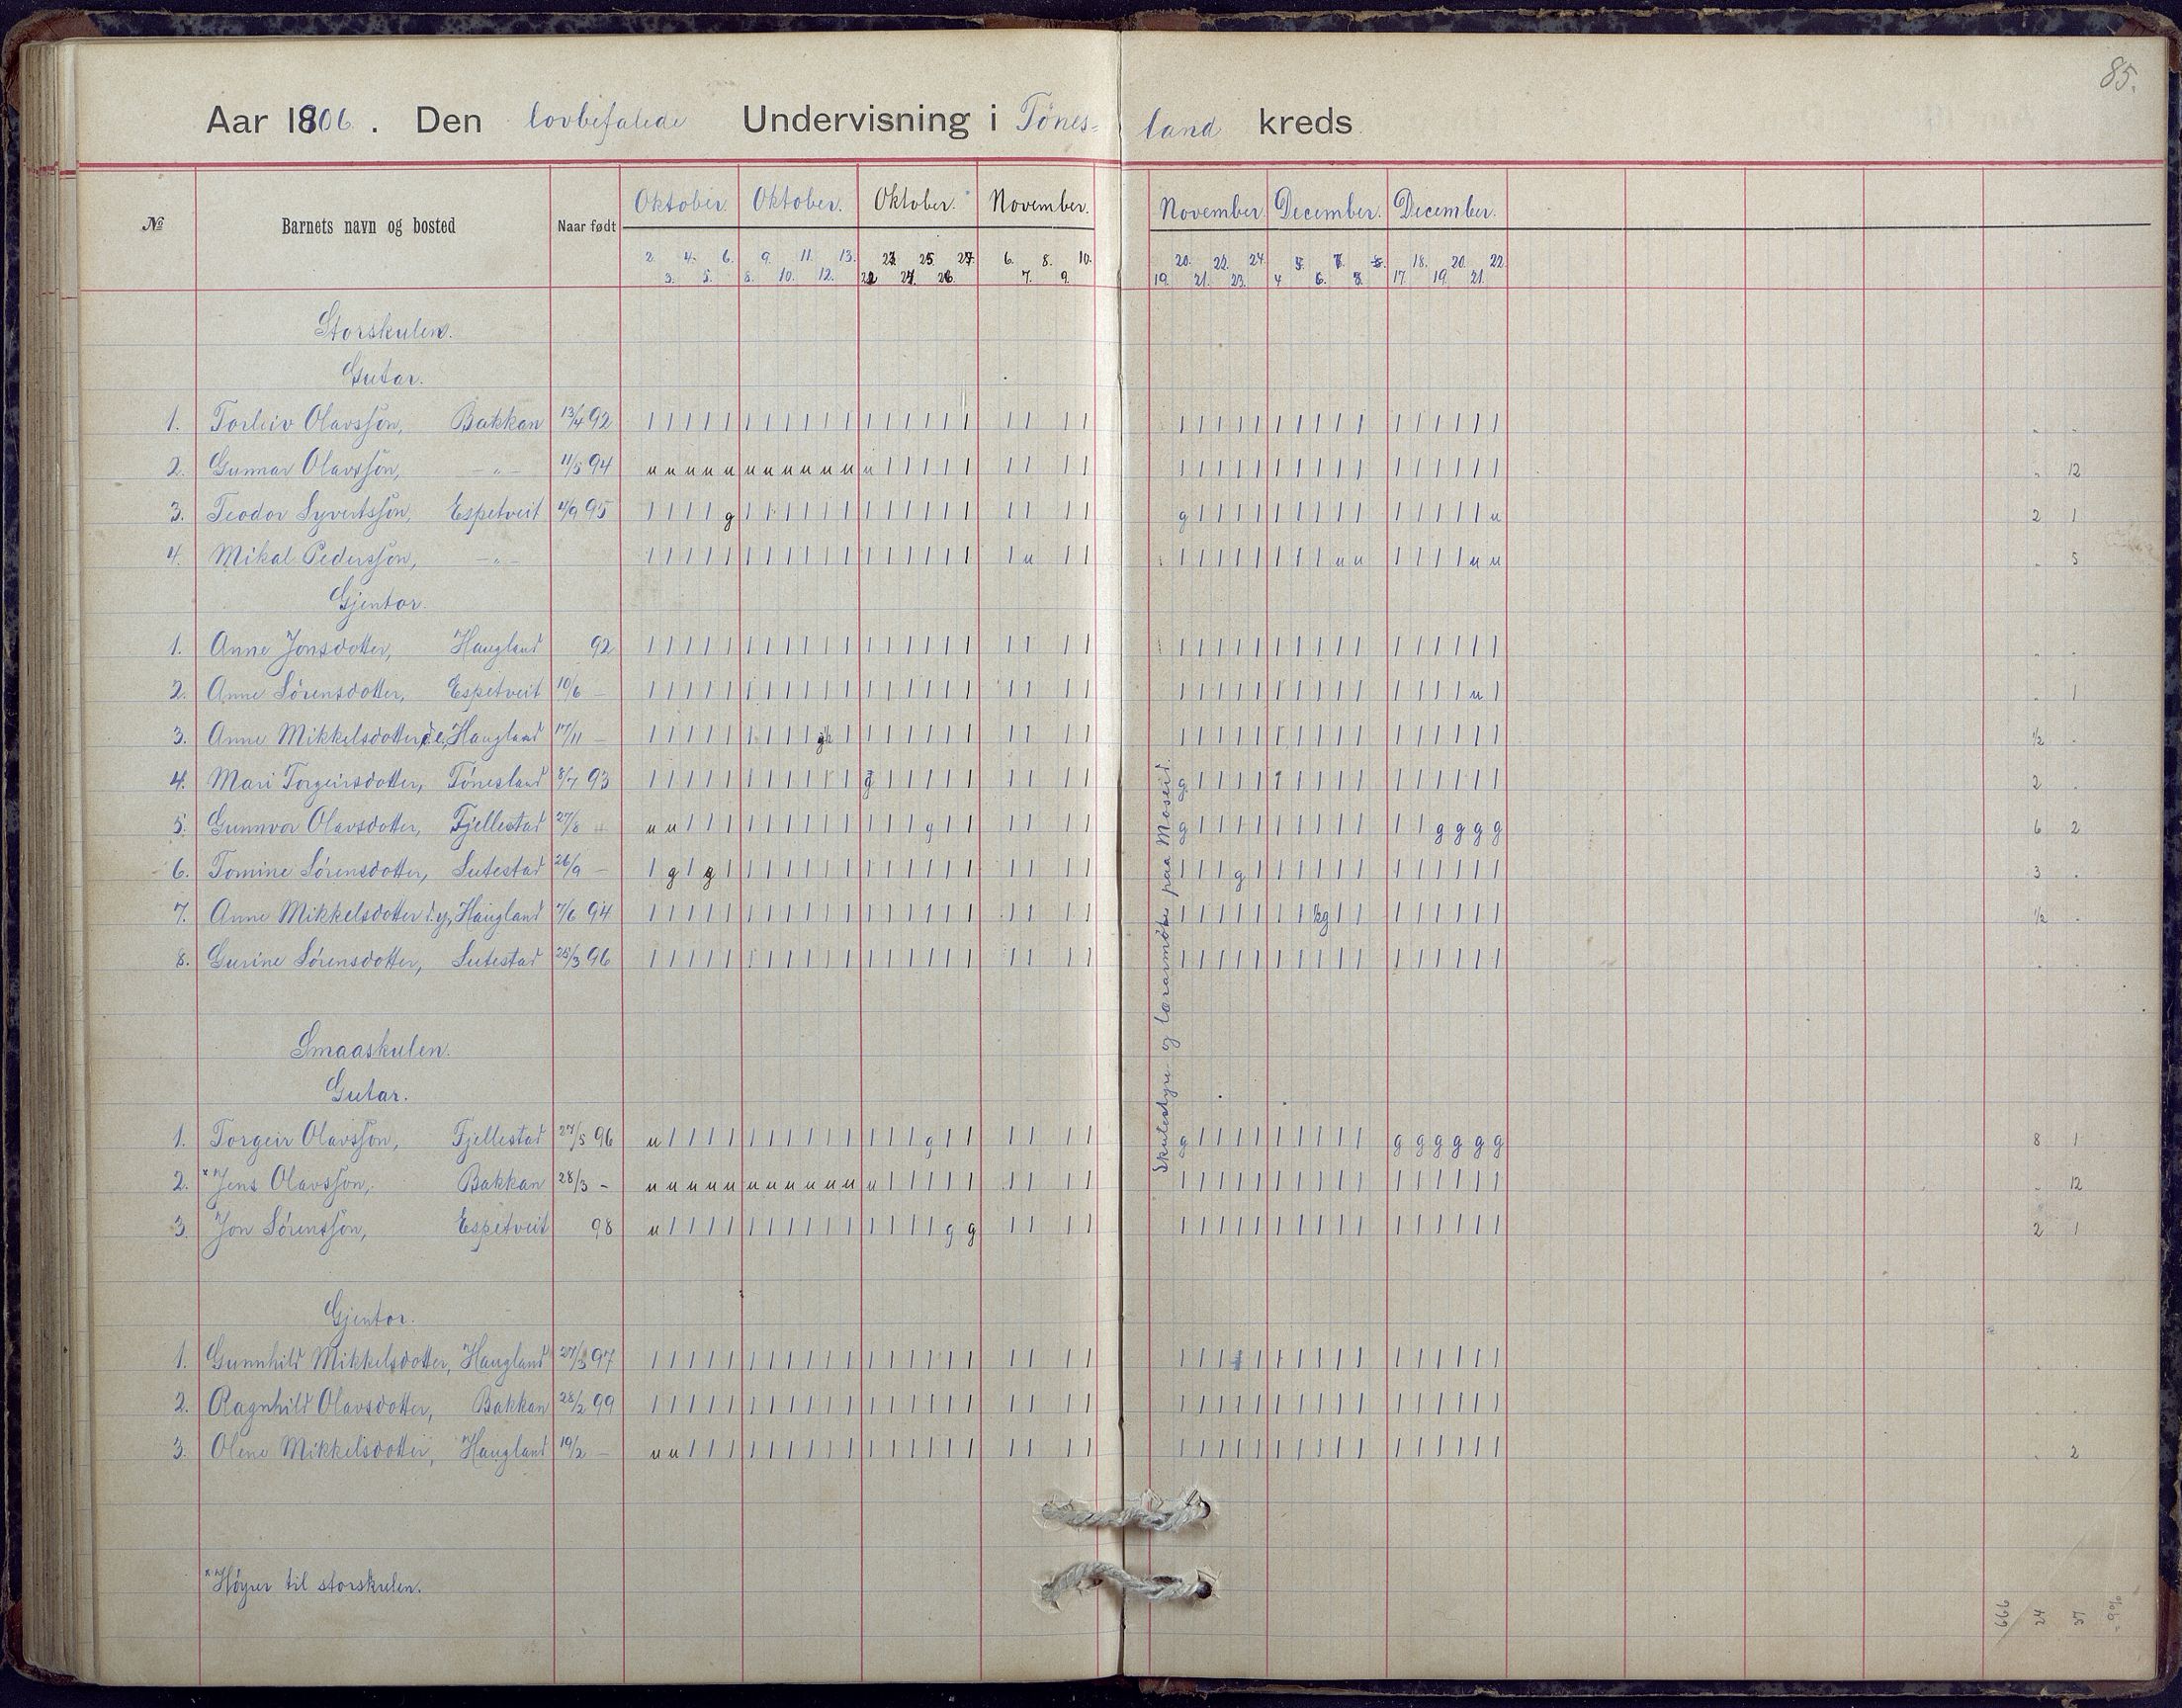 85.
Aar 1906. Den lovbefalede Undervisning i Tónes= land kreds
№ Barnets navn og bosted Naar født Oktober. Oktober. Oktober. November. November. December. December.
2. 4. 6. 9. 11. 13. 23. 25. 27. 6. 8. 10. 20. 22. 24. 5. 7. 8. 18. 20. 22.
3. 5. 8. 10. 12. 22 24. 26. 7. 9. 19. 21. 23. 4 6. 17. 19. 21.
Storskulen.
Gutar.
1. Torleiv Olavsson, Bakkan 13/4 92 | | | | | | | | | | | | | | | | | | | | | | | | | | | | | | | | | | | . .
2. Gunnar Olavsson, -"- 11/5 94 u u u u u u u u u u u u | | | | | | | | | | | | | | | | | | | | | | | | | . 12
3. Teodor Syvertsson, Espetveit 4/9 95 | | | | g | | | | | | | | | | | | | | | | g | | | | | | | | | | | | | | u 2 1
4. Mikal Pedersson, -"- | | | | | | | | | | | | | | | | | | u | | | | | | | | | | u u | | | | u u . 5
Gjentor.
1. Anne Jonsdotter, Haugland 92 . .
2. Anne Sórensdotter, Espetveit 10/6 – u . 1
3. Anne Mikkelsdotter d.e., Haugland 17/11 – ½ .
4. Mari Torgeirsdotter, Tónesland 8/7 93 g g 2 .
5. Gunnvor Olavsdotter, Fjellestad 27/8 – u u g g g g g g 6 2
6. Tomine Sórensdotter, Sutestad 26/9 – g g g 3 .
7. Anne Mikkelsdotter d.y., Haugland 7/6 94 ½g ½ .
8. Gurine Sórensdotter, Sutestad 25/3 96 . .
Skulestyre og lærarmóte paa Moseid.
Smaaskulen.
Gutar.
1. Torgeir Olavsson, Fjellestad 27/5 96 u g g g g g g g g 8 1
2. *Jens Olavsson, Bakkan 28/3 – u u u u u u u u u u u u . 12
3. Jon Sórensson, Espetveit 98 u g g 2 1
Gjentor.
1. Gunnhild Mikkelsdotter, Haugland 27/3 97 . .
2. Ragnhild Olavsdotter, Bakkan 28/2 99 . .
3. Olene Mikkelsdotter, Haugland 19/2 – u u . 2
*Hóyrer til storskulen.
666 24 37 = 9%